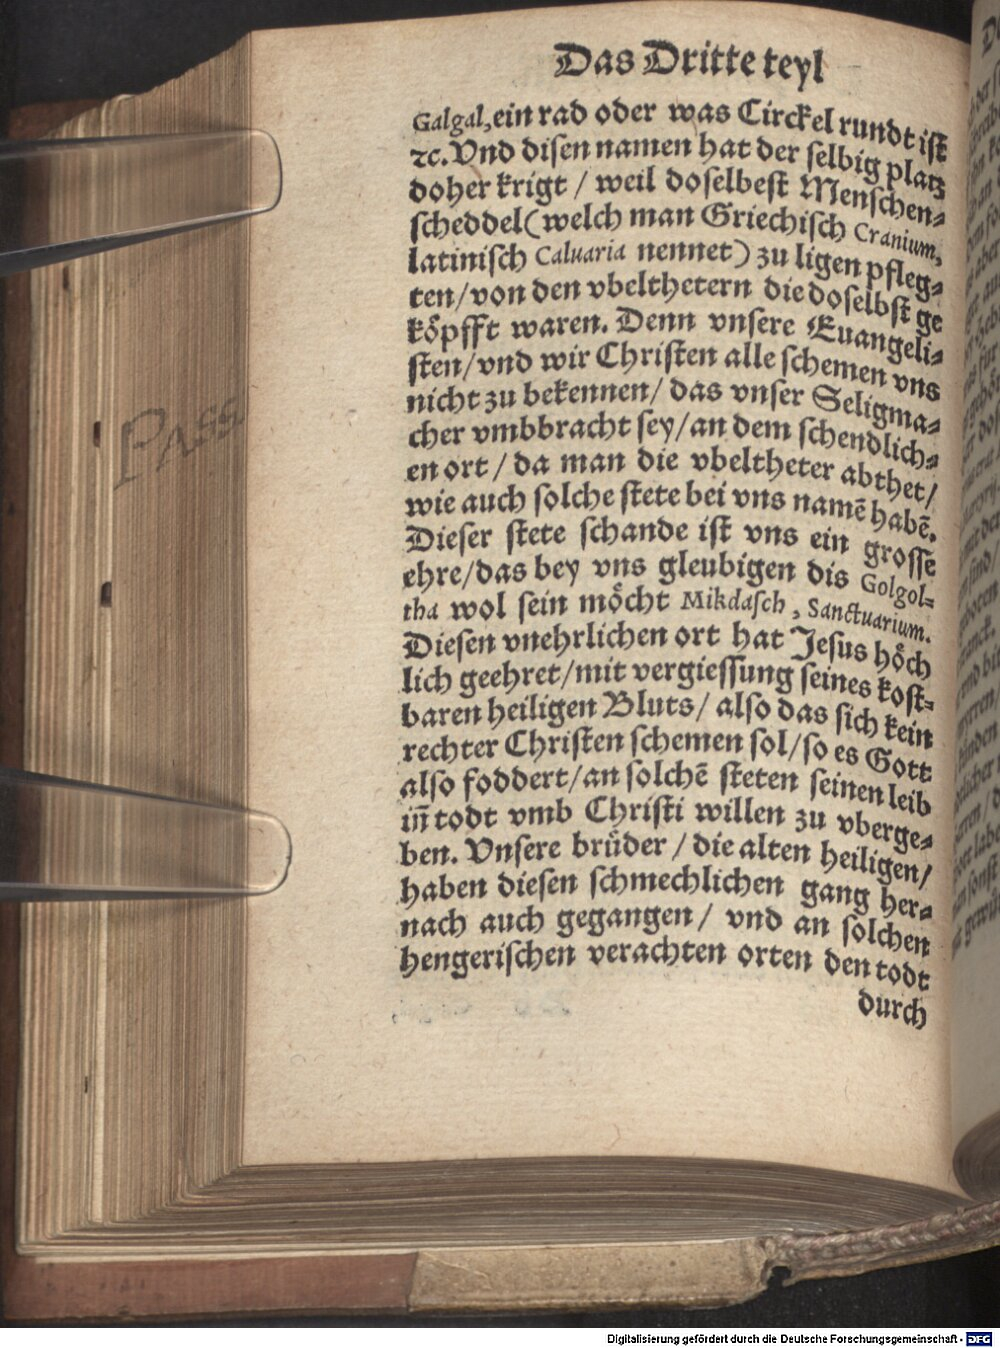 Das Dritte teyl
Galgal, ein rad oder was Circkel rundt ist
ꝛc. Vnd disen namen hat der selbig platz
doher krigt / weil doselbest Menschen-
scheddel (welch man Griechisch Cranium,
latinisch Caluaria nennet) zu ligen pfleg-
ten / von den vbelthetern die doselbst ge
köpfft waren. Denn vnsere Euangeli-
sten / vnd wir Christen alle schemen vns
nicht zu bekennen / das vnser Seligma-
cher vmbbracht sey / an dem schendlich-
en ort / da man die vbeltheter abthet /
wie auch solche stete bei vns namē habē.
Dieser stete schande ist vns ein grosse
ehre / das bey vns gleubigen dis Golgol-
tha wol sein möcht Mikdasch, Sanctuarium.
Diesen vnehrlichen ort hat Jesus höch
lich geehret / mit vergiessung seines kost-
baren heiligen Bluts / also das sich kein
rechter Christen schemen sol / so es Gott
also foddert / an solchē steten seinen leib
iñ todt vmb Christi willen zu vberge-
ben. Vnsere brüder / die alten heiligen /
haben diesen schmechlichen gang her-
nach auch gegangen / vnd an solchen
hengerischen verachten orten den todt
durch
Pass.
Digitalisierung gefördert durch die Deutsche Forschungsgemeinschaft - DFG